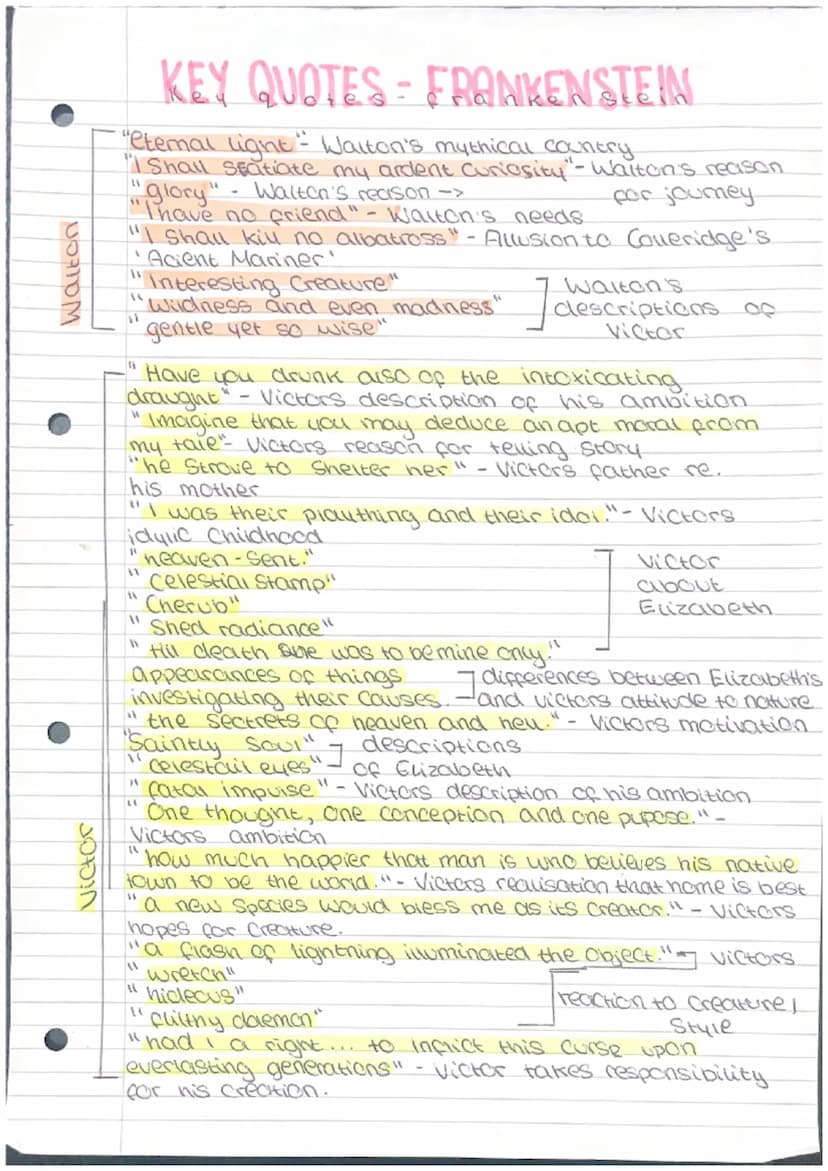 KEY QUOTES - FRANKENSTEIN
Key quotes - frankenstein
"eternal light" - Walton's mythical country
"I Shall satiate my ardent curiosity" - Walton's reason
"glory" - Walton's reason -> for journey
"I have no friend" - Walton's needs
"I Shall kill no albatross" - Allusion to Coueridge's
'Acient Mariner'
"Interesting Creature"
"wildness and even madness"
"gentle yet so wise"
Walton's
descriptions of
Victor
Walton
"Have you drunk also of the intoxicating
draught" - Victors description of his ambition
"Imagine that you may deduce an apt moral from
my tale" - Victors reason for telling story
"he strove to shelter her" - Victors father re.
his mother
"I was their plaything and their idol." - Victors
idylic Childhood
"heaven-sent."
"Celestial Stamp"
"Cherub"
"Shed radiance"
"till death she was to be mine only."
Victor
about
Elizabeth
appearances of things
investigating their causes.
differences between Elizabeth's
and victors attitude to nature
"the sectrets of heaven and hell." - Victors motivation
"Saintly Soul"
"celestail eyes"
descriptions
of Elizabeth
"fatal impulse" - Victors description of his ambition
"One thought, one conception and one pupose." -
Victors ambition
"how much happier that man is who believes his native
town to be the world." - Victors realisation that home is best
"a new species would bless me as its creator." - Victors
hopes for Creature.
"a flash of lightning illuminated the object." - Victors
"wretch"
"hideous"
"filthy daemon"
reaction to Creature/
Style
"had I a right... to inflict this curse upon
everlasting generations" - Victor takes responsibility
for his creation.
Victor